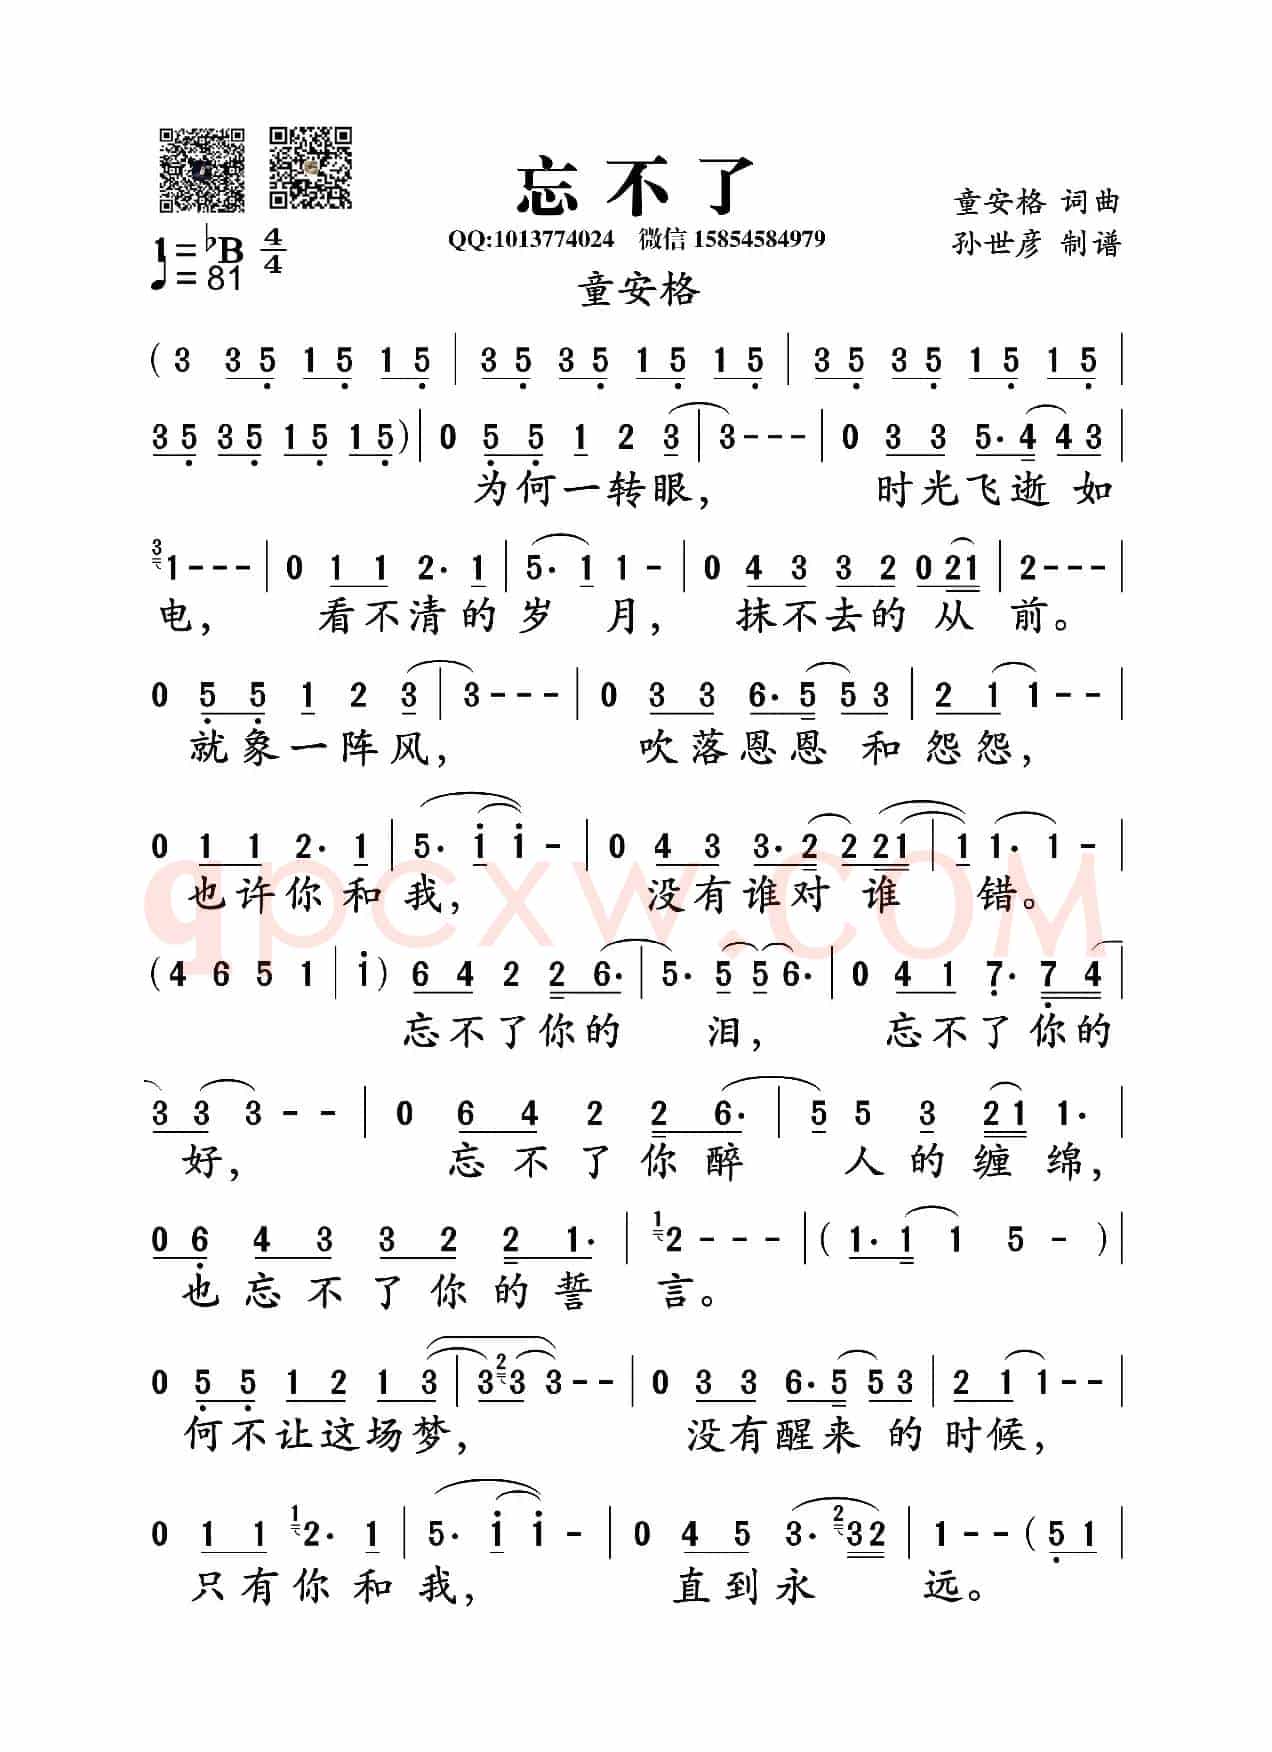 忘不了
QQ:1013774024 微信 15854584979
童安格 词曲
孙世彦 制谱
1=♭B 4/4
♩=81
童安格
(3 3 5 1 5 1 5 | 3 5 3 5 1 5 1 5 | 3 5 3 5 1 5 1 5 |
3 5 3 5 1 5 1 5) | 0 5 5 1 2 3 | 3 - - - | 0 3 3 5· 4 4 3 |
为何一转眼, 时光飞逝 如
3 1 - - - | 0 1 1 2· 1 | 5· 1 1 - | 0 4 3 3 2 0 2 1 | 2 - - - |
电, 看不清的 岁 月, 抹不去的 从 前。
0 5 5 1 2 3 | 3 - - - | 0 3 3 6· 5 5 3 | 2 1 1 - - |
就象一阵风, 吹落恩恩 和怨怨,
0 1 1 2· 1 | 5· i i - | 0 4 3 3· 2 2 2 1 | 1 1· 1 - |
也许你 和 我, 没有谁对 谁 错。
qpcxw.COM
(4 6 5 1 | i) 6 4 2 2 6· | 5· 5 5 6· | 0 4 1 7· 7 4 |
忘不了你的 泪, 忘不了你的
3 3 3 - - | 0 6 4 2 2 6· | 5 5 3 2 1 1· |
好, 忘不了你醉 人的缠绵,
0 6 4 3 3 2 2 1· | 1 2 - - - | (1· 1 1 5 -) |
也忘不了你的誓 言。
0 5 5 1 2 1 3 | 3 2 3 3 - - | 0 3 3 6· 5 5 3 | 2 1 1 - - |
何不让这场梦, 没有醒来 的时候,
0 1 1 1 2· 1 | 5· i i - | 0 4 5 3· 2 3 2 | 1 - - (5 1 |
只有你 和 我, 直到永 远。